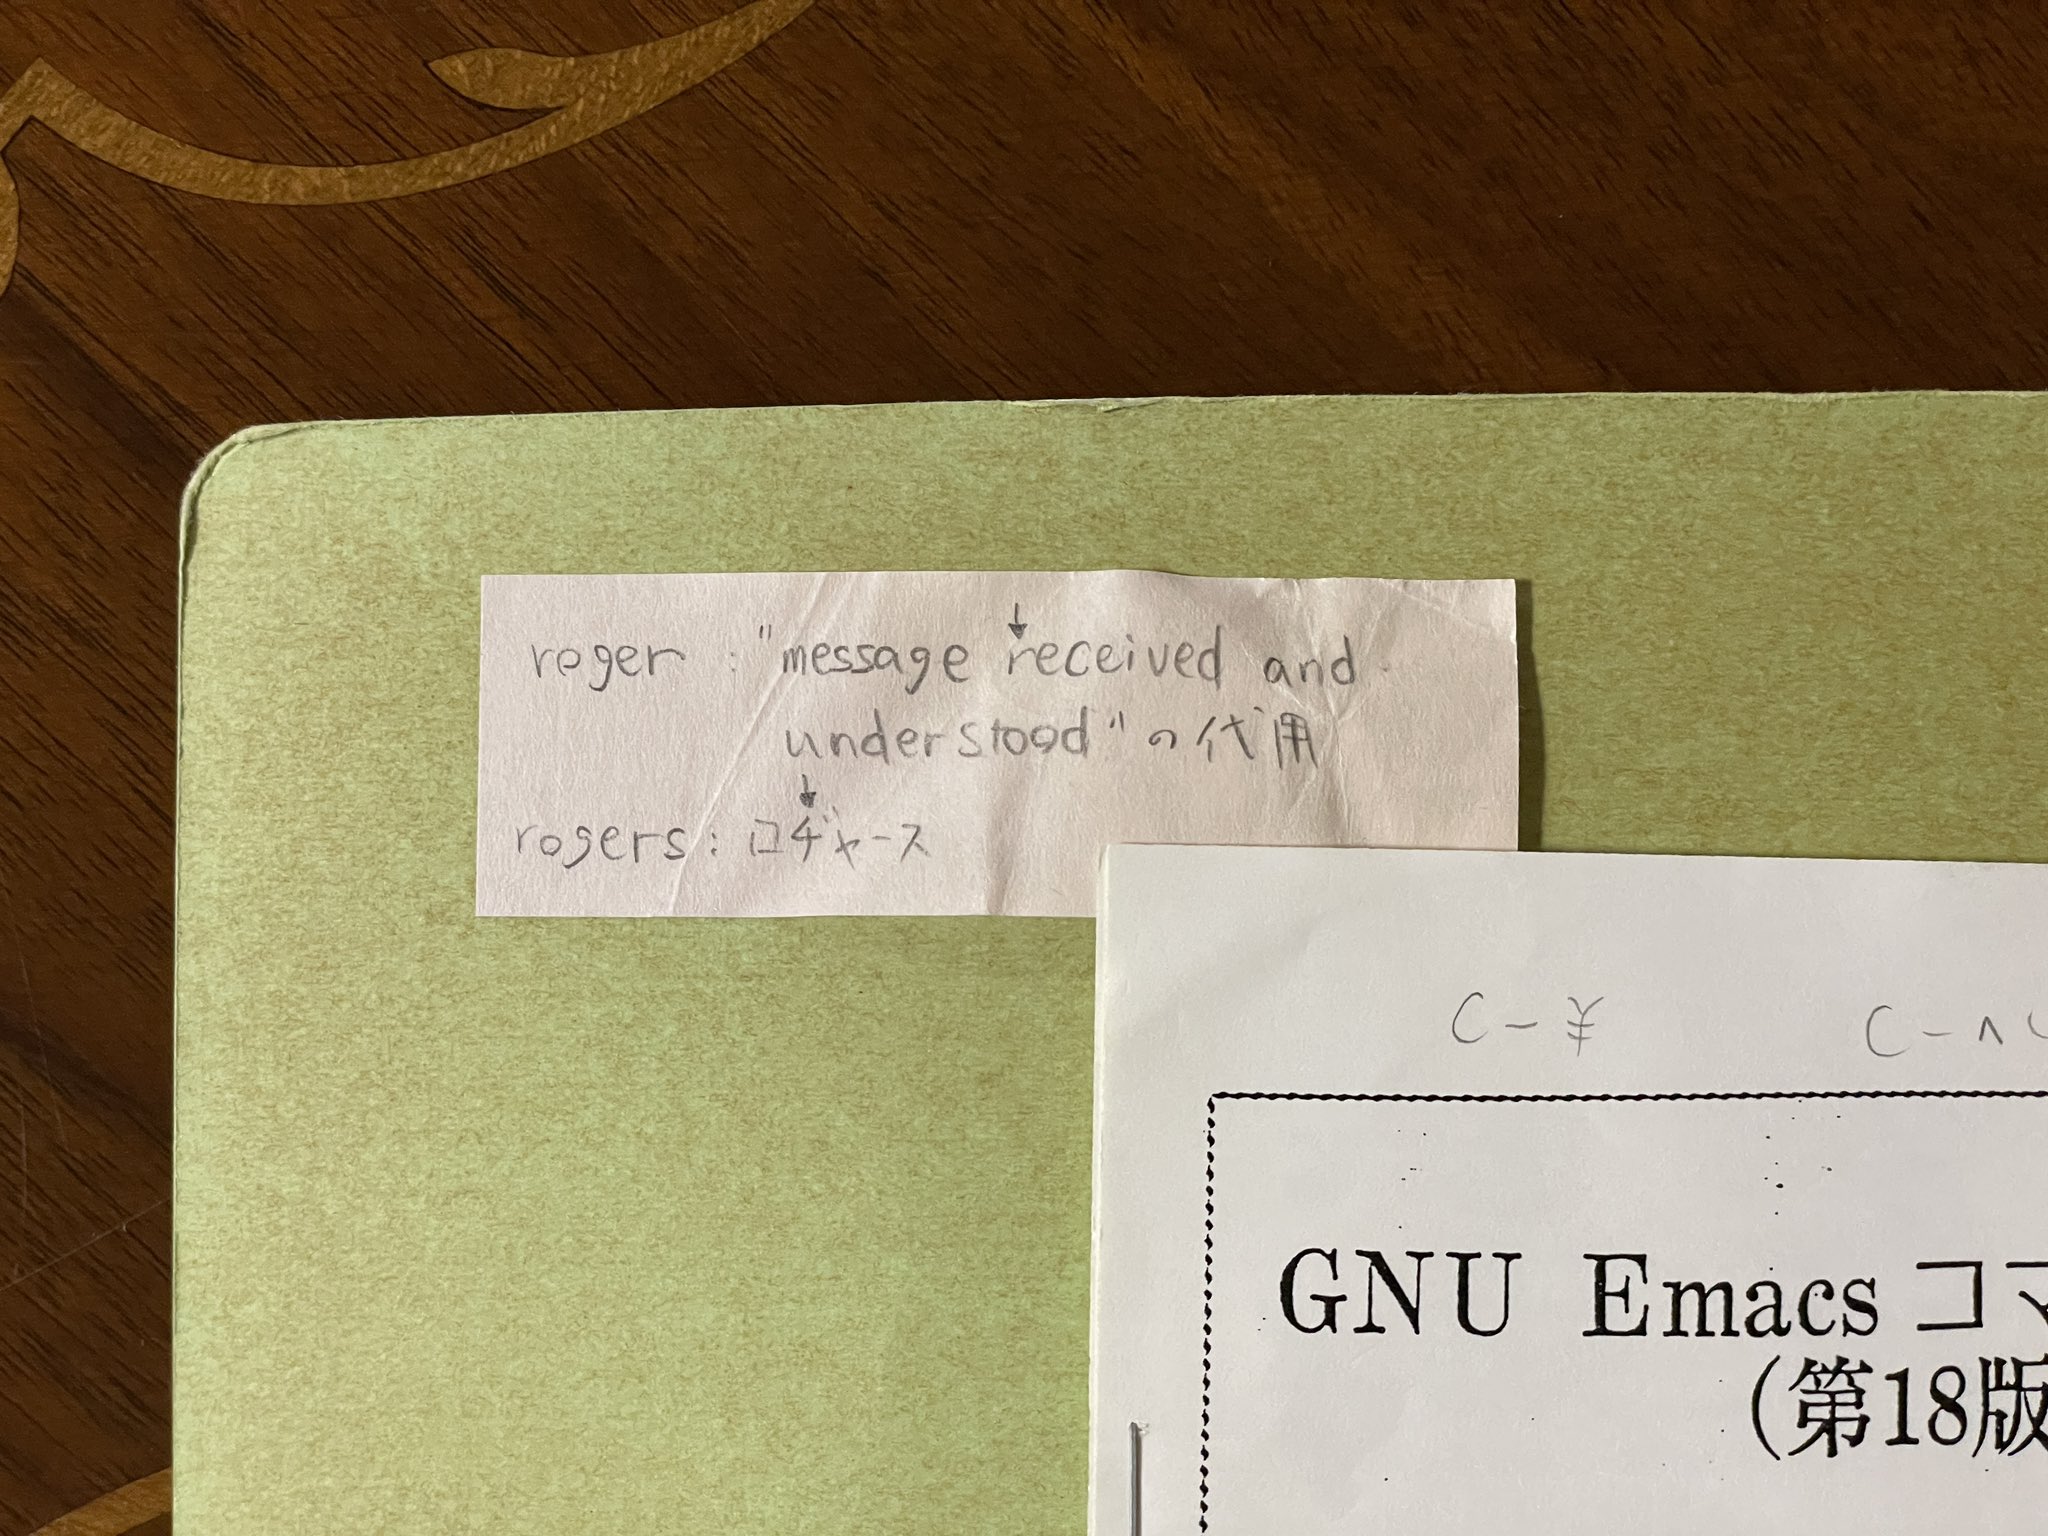 roger : "message received and
understood" の代用
rogers : ロヂャース
C-¥ C-^
GNU Emacs コマ
(第18版